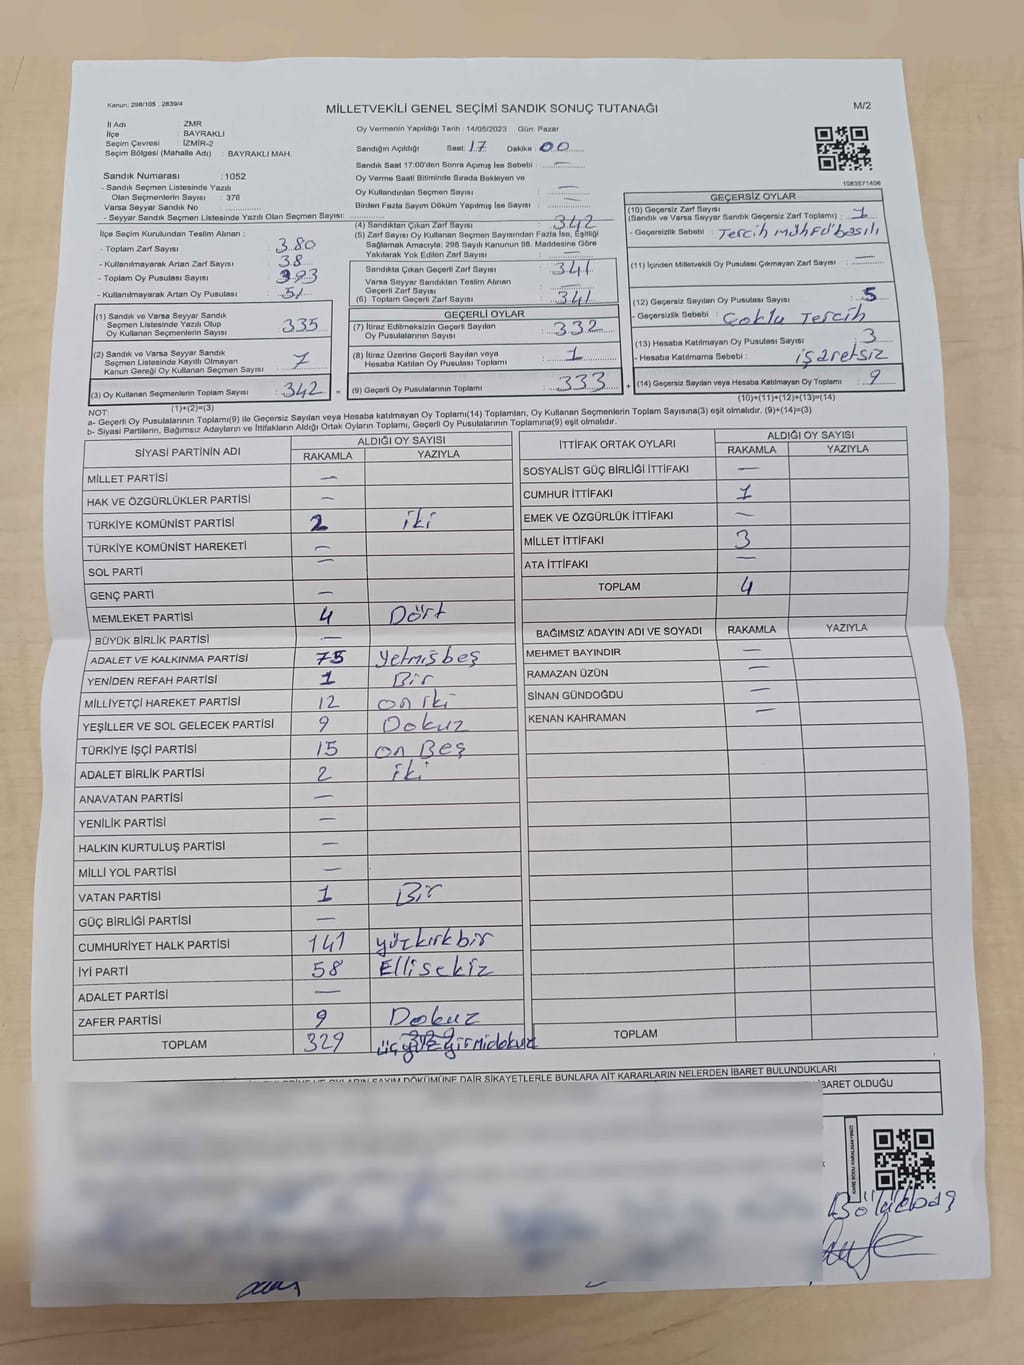 Kanun: 298/105 , 2839/4
MİLLETVEKİLİ GENEL SEÇİMİ SANDIK SONUÇ TUTANAĞI
M/2
İl Adı : ZMR
İlçe : BAYRAKLI
Seçim Çevresi : İZMİR-2
Seçim Bölgesi (Mahalle Adı) : BAYRAKLI MAH.
Sandık Numarası : 1052
- Sandık Seçmen Listesinde Yazılı
Olan Seçmenlerin Sayısı : 376
Varsa Seyyar Sandık No :
- Seyyar Sandık Seçmen Listesinde Yazılı Olan Seçmen Sayısı:
Oy Vermenin Yapıldığı Tarih : 14/05/2023 Gün: Pazar
Sandığın Açıldığı Saat: 17 Dakika: 00
Sandık Saat 17:00'den Sonra Açımış İse Sebebi : —
Oy Verme Saati Bitiminde Sırada Bekleyen ve
Oy Kullandırılan Seçmen Sayısı : —
Birden Fazla Sayım Döküm Yapılmış İse Sayısı : —
1083571406
İlçe Seçim Kurulundan Teslim Alınan ;
- Toplam Zarf Sayısı : 380
- Kullanılmayarak Artan Zarf Sayısı : 38
- Toplam Oy Pusulası Sayısı : 393
- Kullanılmayarak Artan Oy Pusulası : 51
(1) Sandık ve Varsa Seyyar Sandık
Seçmen Listesinde Yazılı Olup
Oy Kullanan Seçmenlerin Sayısı : 335
(2) Sandık ve Varsa Seyyar Sandık
Seçmen Listesinde Kayıtlı Olmayan
Kanun Gereği Oy Kullanan Seçmen Sayısı : 7
(3) Oy Kullanan Seçmenlerin Toplam Sayısı : 342 =
(1)+(2)=(3)
(4) Sandıktan Çıkan Zarf Sayısı : 342
(5) Zarf Sayısı Oy Kullanan Seçmen Sayısından Fazla İse, Eşitliği
Sağlamak Amacıyla; 298 Sayılı Kanunun 98. Maddesine Göre
Yakılarak Yok Edilen Zarf Sayısı : —
Sandıkta Çıkan Geçerli Zarf Sayısı : 341
Varsa Seyyar Sandıktan Teslim Alınan
Geçerli Zarf Sayısı : —
(6) Toplam Geçerli Zarf Sayısı : 341
GEÇERLİ OYLAR
(7) İtiraz Edilmeksizin Geçerli Sayılan
Oy Pusulalarının Sayısı : 332
(8) İtiraz Üzerine Geçerli Sayılan veya
Hesaba Katılan Oy Pusulası Toplamı : 1
(9) Geçerli Oy Pusulalarının Toplamı : 333 +
GEÇERSİZ OYLAR
(10) Geçersiz Zarf Sayısı
(Sandık ve Varsa Seyyar Sandık Geçersiz Zarf Toplamı) : 1
- Geçersizlik Sebebi : Tercih Mühfü basılı
(11) İçinden Milletvekili Oy Pusulası Çıkmayan Zarf Sayısı : —
(12) Geçersiz Sayılan Oy Pusulası Sayısı : 5
- Geçersizlik Sebebi : Çoklu Tercih
(13) Hesaba Katılmayan Oy Pusulası Sayısı : 3
- Hesaba Katılmama Sebebi : işaretsiz
(14) Geçersiz Sayılan veya Hesaba Katılmayan Oy Toplamı : 9
(10)+(11)+(12)+(13)=(14)
NOT:
a- Geçerli Oy Pusulalarının Toplamı(9) ile Geçersiz Sayılan veya Hesaba katılmayan Oy Toplamı(14) Toplamları, Oy Kullanan Seçmenlerin Toplam Sayısına(3) eşit olmalıdır. (9)+(14)=(3)
b- Siyasi Partilerin, Bağımsız Adayların ve İttifakların Aldığı Ortak Oyların Toplamı, Geçerli Oy Pusulalarının Toplamına(9) eşit olmalıdır.
SİYASİ PARTİNİN ADI ALDIĞI OY SAYISI
RAKAMLA YAZIYLA
MİLLET PARTİSİ —
HAK VE ÖZGÜRLÜKLER PARTİSİ —
TÜRKİYE KOMÜNİST PARTİSİ 2 iki
TÜRKİYE KOMÜNİST HAREKETİ —
SOL PARTİ —
GENÇ PARTİ —
MEMLEKET PARTİSİ 4 Dört
BÜYÜK BİRLİK PARTİSİ —
ADALET VE KALKINMA PARTİSİ 75 Yetmişbeş
YENİDEN REFAH PARTİSİ 1 Bir
MİLLİYETÇİ HAREKET PARTİSİ 12 on iki
YEŞİLLER VE SOL GELECEK PARTİSİ 9 Dokuz
TÜRKİYE İŞÇİ PARTİSİ 15 on Beş
ADALET BİRLİK PARTİSİ 2 iki
ANAVATAN PARTİSİ —
YENİLİK PARTİSİ —
HALKIN KURTULUŞ PARTİSİ —
MİLLİ YOL PARTİSİ —
VATAN PARTİSİ 1 Bir
GÜÇ BİRLİĞİ PARTİSİ —
CUMHURİYET HALK PARTİSİ 141 yüzkırkbir
İYİ PARTİ 58 Ellisekiz
ADALET PARTİSİ —
ZAFER PARTİSİ 9 Dokuz
TOPLAM 329 üçyüzyirmidokuz
İTTİFAK ORTAK OYLARI ALDIĞI OY SAYISI
RAKAMLA YAZIYLA
SOSYALİST GÜÇ BİRLİĞİ İTTİFAKI —
CUMHUR İTTİFAKI 1
EMEK VE ÖZGÜRLÜK İTTİFAKI —
MİLLET İTTİFAKI 3
ATA İTTİFAKI —
TOPLAM 4
BAĞIMSIZ ADAYIN ADI VE SOYADI RAKAMLA YAZIYLA
MEHMET BAYINDIR —
RAMAZAN ÜZÜN —
SİNAN GÜNDOĞDU —
KENAN KAHRAMAN —
TOPLAM
SAYIM DÖKÜMÜNE DAİR ŞİKAYETLERLE BUNLARA AİT KARARLARIN NELERDEN İBARET BULUNDUKLARI
İBARET OLDUĞU
Bölükbaş